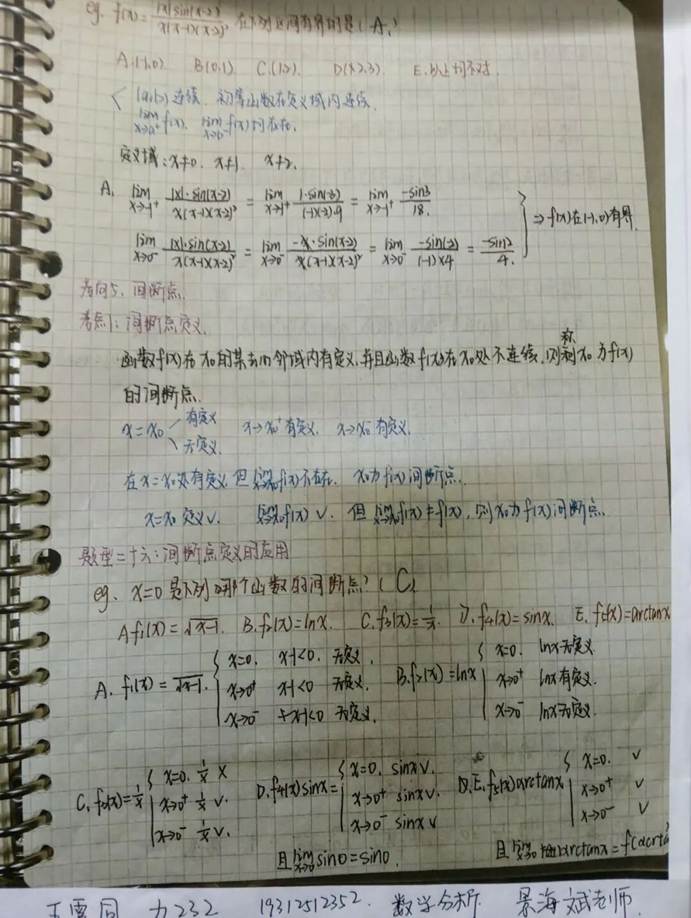 eg. f(x)=|x|sin(x-2)/x(x-1)(x-2)² 在下列区间有界的是(A.)
A.(-1,0). B(0,1). C.(1,2). D(2,3). E.以上均不对.
(a,b)连续. 初等函数在定义域内连续.
lim x→a⁺ f(x). lim x→b⁻ f(x)均存在.
定义域: x≠0. x≠1. x≠2.
A. lim x→-1⁺ |x|·sin(x-2)/x(x-1)(x-2)² = lim x→-1⁺ 1·sin(-3)/(-1)(-2)·9 = lim x→-1⁺ -sin3/18.
lim x→0⁻ |x|·sin(x-2)/x(x-1)(x-2)² = lim x→0⁻ -x·sin(x-2)/x(x-1)(x-2)² = lim x→0⁻ -sin(-2)/(-1)×4 = -sin2/4. ⇒f(x)在(-1,0)有界.
考向5. 间断点.
考点1: 间断点定义.
函数f(x)在x₀的某去心邻域内有定义,并且函数f(x)在x₀处不连续,则称x₀为f(x)
的间断点.
x=x₀ 有定义 无定义. x→x₀⁺有定义. x→x₀⁻有定义.
在x=x₀处有定义,但lim x→x₀ f(x)不存在. x₀为f(x)间断点.
x=x₀定义√. lim x→x₀ f(x)√. 但lim x→x₀ f(x)≠f(x₀),则x₀为f(x)间断点.
题型二十六:间断点定义的应用
eg. x=0是下列哪个函数的间断点?(C)
A f₁(x)=√x-1. B.f₂(x)=lnx. C.f₃(x)=1/x. D.f₄(x)=sinx. E.f₅(x)=arctanx
A. f₁(x)=√x-1. x=0. x-1<0. 无定义. B.f₂(x)=lnx x=0. lnx无定义
x→0⁺ x-1<0 无定义. x→0⁺ lnx有定义.
x→0⁻ x-1<0 无定义. x→0⁻ lnx无定义.
C.f₃(x)=1/x x=0. 1/x × D.f₄(x)sinx= x=0, sinx√. E.f₅(x)arctanx x=0. √
x→0⁺ 1/x √. x→0⁺ sinx√. x→0⁺ √
x→0⁻ 1/x √. x→0⁻ sinx√ x→0⁻ √
且lim x→0 sin0=sin0. 且lim x→0 arctanx=f(arct
力232 19312512352. 数学分析. 景海斌老师